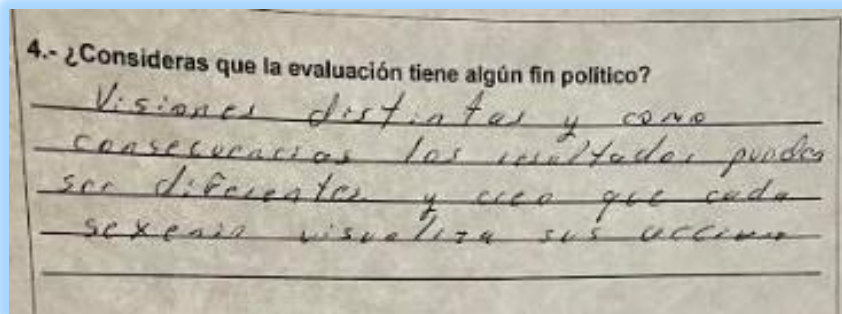 4.- ¿Consideras que la evaluación tiene algún fin político?
Visiones distintas y como
consecuencias los resultados pueden
ser diferentes y creo que cada
sexenio visualiza sus